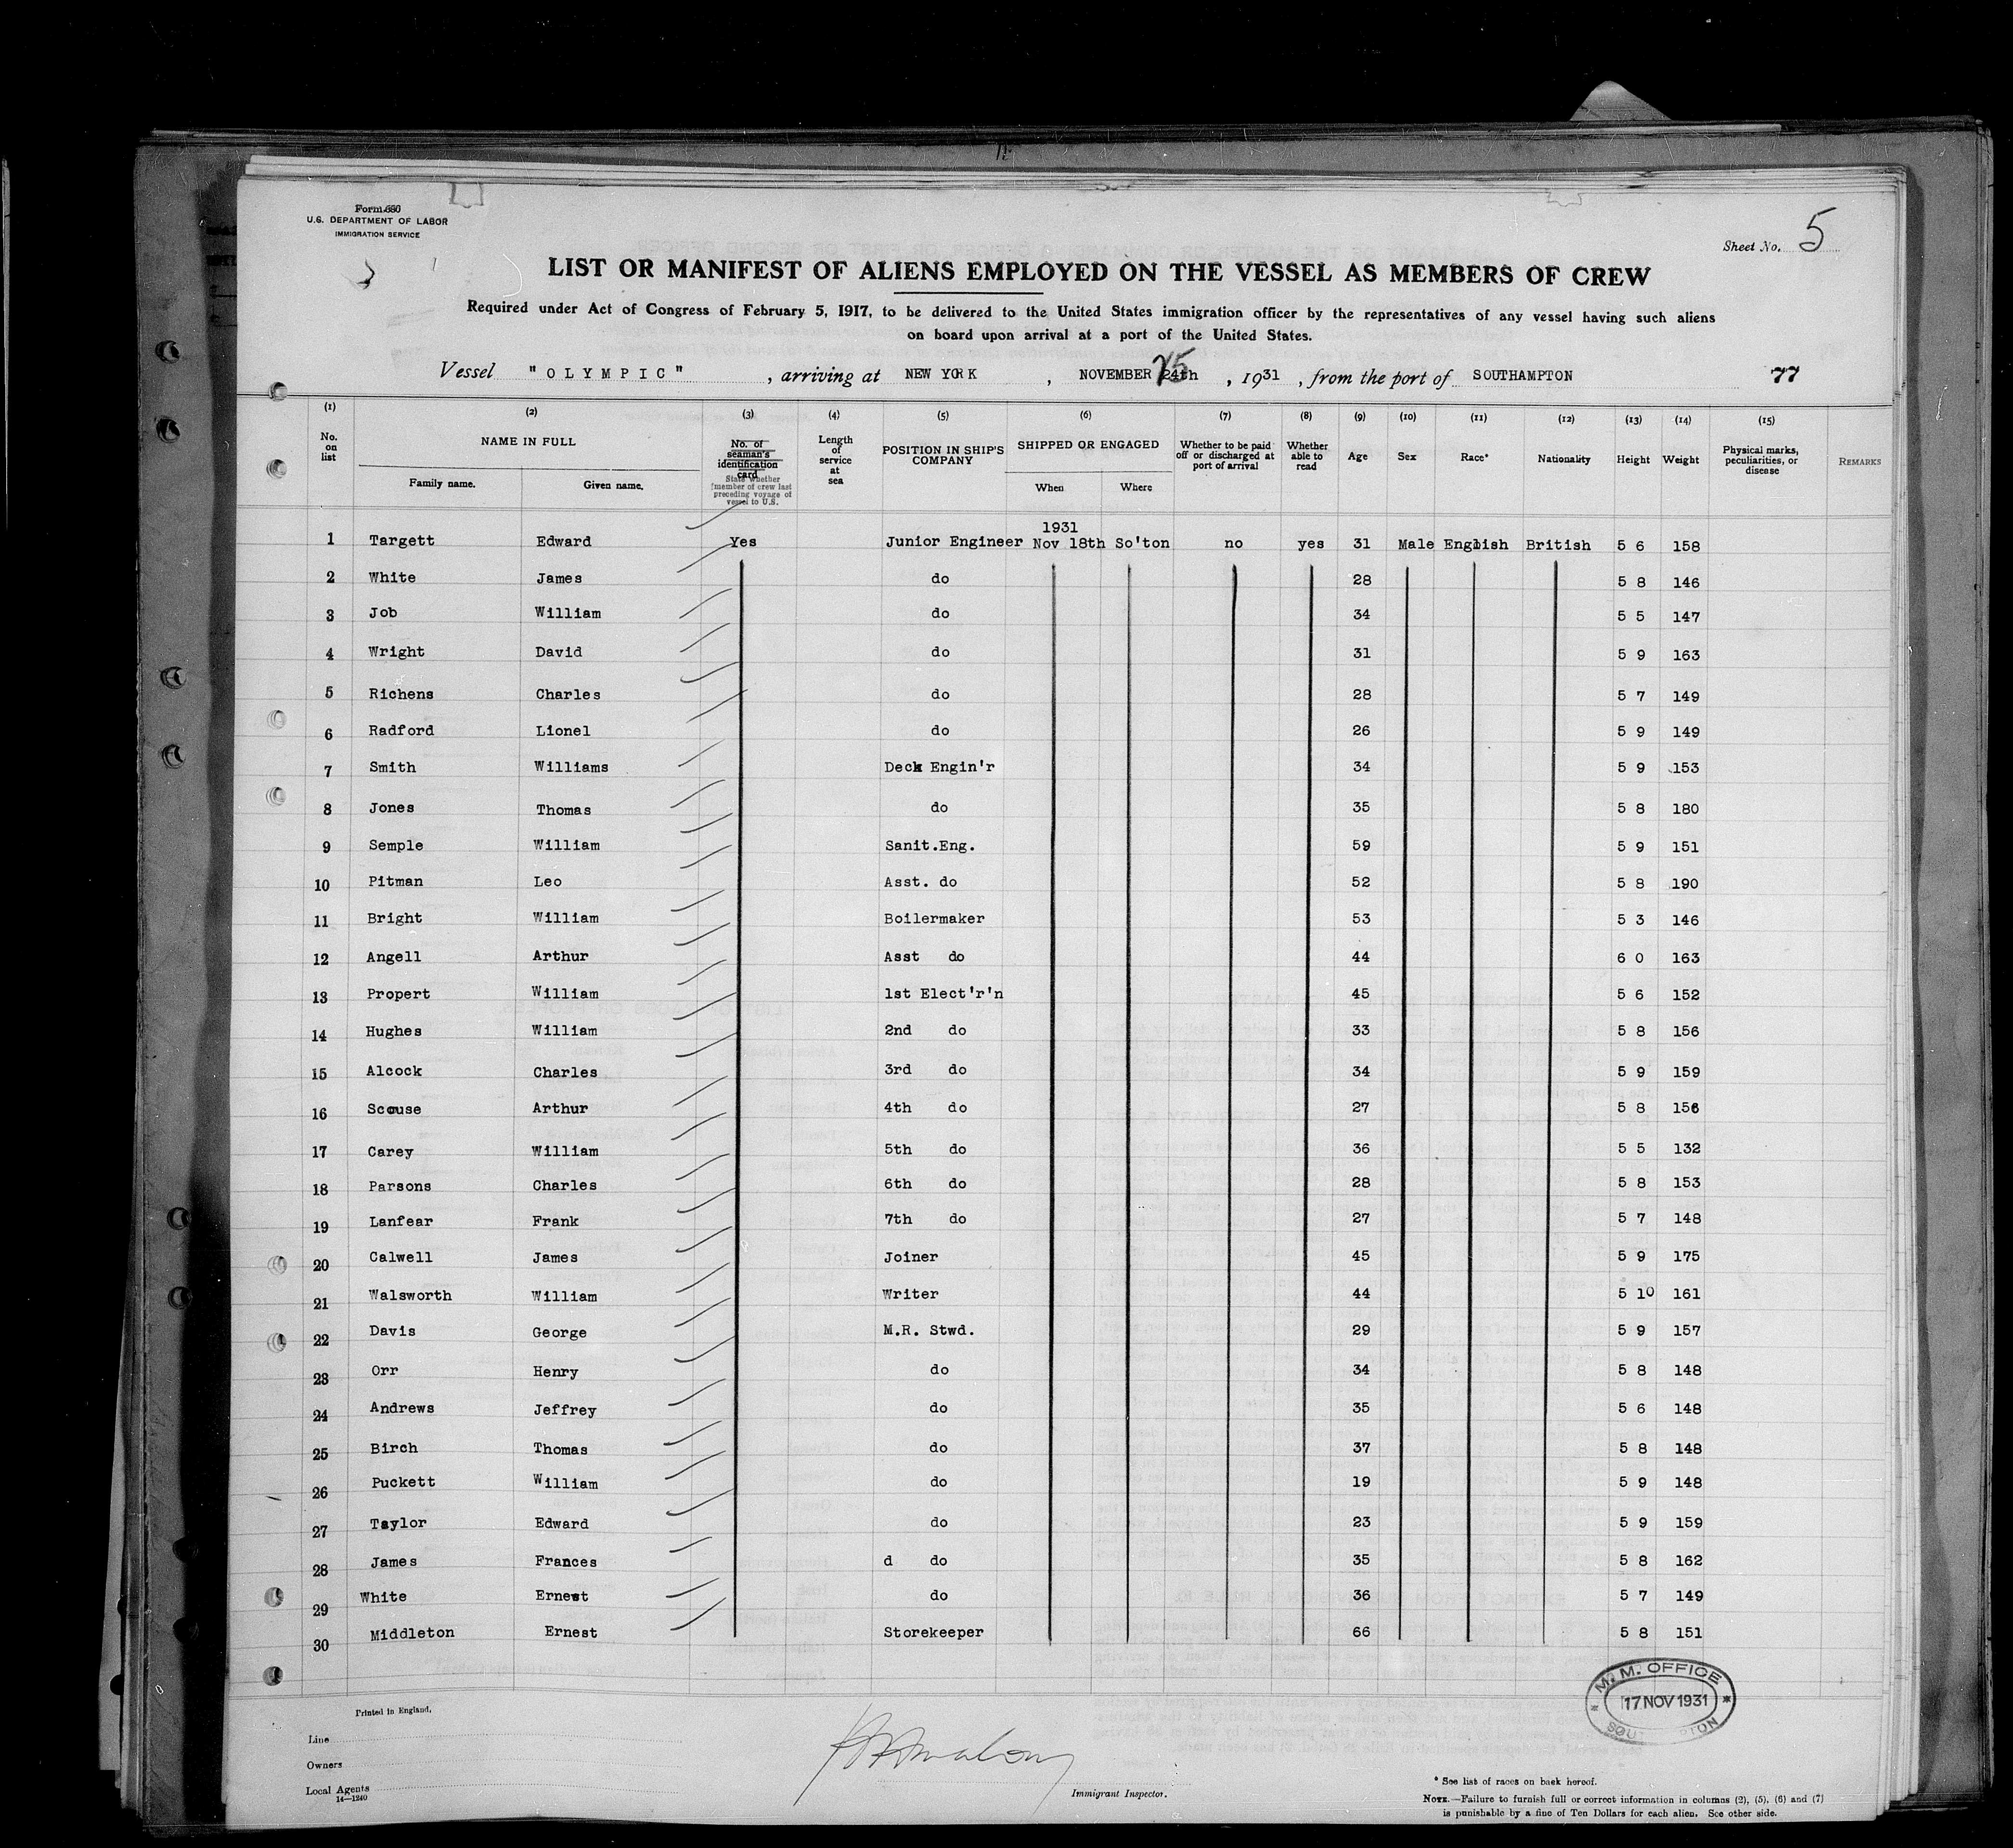 Form 680
U.S. DEPARTMENT OF LABOR
IMMIGRATION SERVICE
Sheet No. 5
LIST OR MANIFEST OF ALIENS EMPLOYED ON THE VESSEL AS MEMBERS OF CREW
Required under Act of Congress of February 5, 1917, to be delivered to the United States immigration officer by the representatives of any vessel having such aliens
on board upon arrival at a port of the United States.
Vessel "OLYMPIC" , arriving at NEW YORK , NOVEMBER 24th 25 , 1931 , from the port of SOUTHAMPTON 77
(1) (2) (3) (4) (5) (6) (7) (8) (9) (10) (11) (12) (13) (14) (15)
No. on list
NAME IN FULL
Family name. Given name.
No. of seaman's identification card
State whether member of crew last preceding voyage of vessel to U.S.
Length of service at sea
POSITION IN SHIP'S COMPANY
SHIPPED OR ENGAGED
When Where
Whether to be paid off or discharged at port of arrival
Whether able to read
Age
Sex
Race*
Nationality
Height
Weight
Physical marks, peculiarities, or disease
REMARKS
1931
1 Targett Edward Yes Junior Engineer Nov 18th So'ton no yes 31 Male English British 5 6 158
2 White James do 28 5 8 146
3 Job William do 34 5 5 147
4 Wright David do 31 5 9 163
5 Richens Charles do 28 5 7 149
6 Radford Lionel do 26 5 9 149
7 Smith Williams Deck Engin'r 34 5 9 153
8 Jones Thomas do 35 5 8 180
9 Semple William Sanit.Eng. 59 5 9 151
10 Pitman Leo Asst. do 52 5 8 190
11 Bright William Boilermaker 53 5 3 146
12 Angell Arthur Asst do 44 6 0 163
13 Propert William 1st Elect'r'n 45 5 6 152
14 Hughes William 2nd do 33 5 8 156
15 Alcock Charles 3rd do 34 5 9 159
16 Scouse Arthur 4th do 27 5 8 156
17 Carey William 5th do 36 5 5 132
18 Parsons Charles 6th do 28 5 8 153
19 Lanfear Frank 7th do 27 5 7 148
20 Calwell James Joiner 45 5 9 175
21 Walsworth William Writer 44 5 10 161
22 Davis George M.R. Stwd. 29 5 9 157
23 Orr Henry do 34 5 8 148
24 Andrews Jeffrey do 35 5 6 148
25 Birch Thomas do 37 5 8 148
26 Puckett William do 19 5 9 148
27 Taylor Edward do 23 5 9 159
28 James Frances d do 35 5 8 162
29 White Ernest do 36 5 7 149
30 Middleton Ernest Storekeeper 66 5 8 151
M. M. OFFICE
17 NOV 1931
Printed in England.
Line
Owners
Local Agents
14—1240
Immigrant Inspector.
* See list of races on back hereof.
NOTE.—Failure to furnish full or correct information in columns (2), (5), (6) and (7)
is punishable by a fine of Ten Dollars for each alien. See other side.